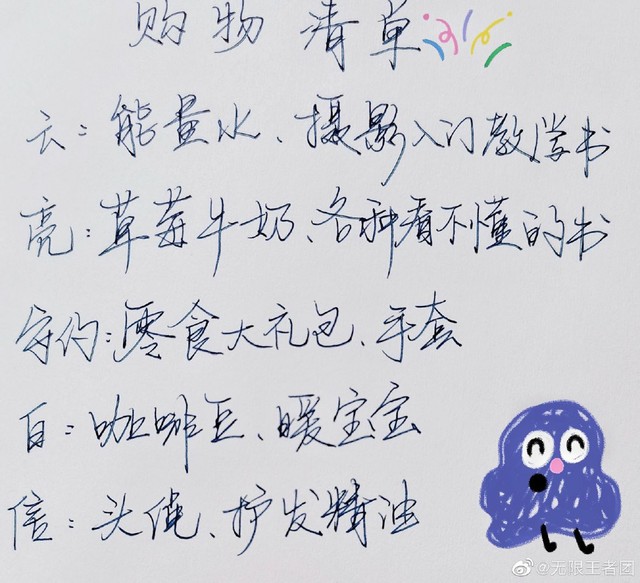 购物清单
云：能量水、摄影入门教学书
亮：草莓牛奶、各种看不懂的书
守约：零食大礼包、手套
白：咖啡豆、暖宝宝
信：头绳、护发精油
@无限王者团